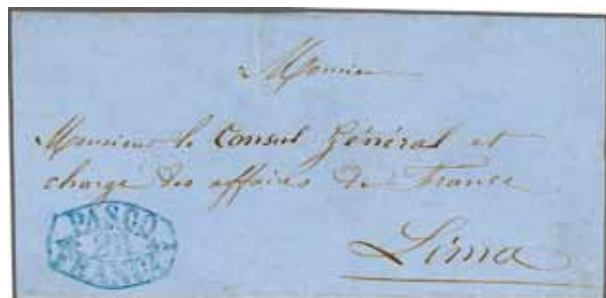 Monsieur
Monsieur le Consul Général et
chargé des affaires de France
Lima
PASCO
FRANCA